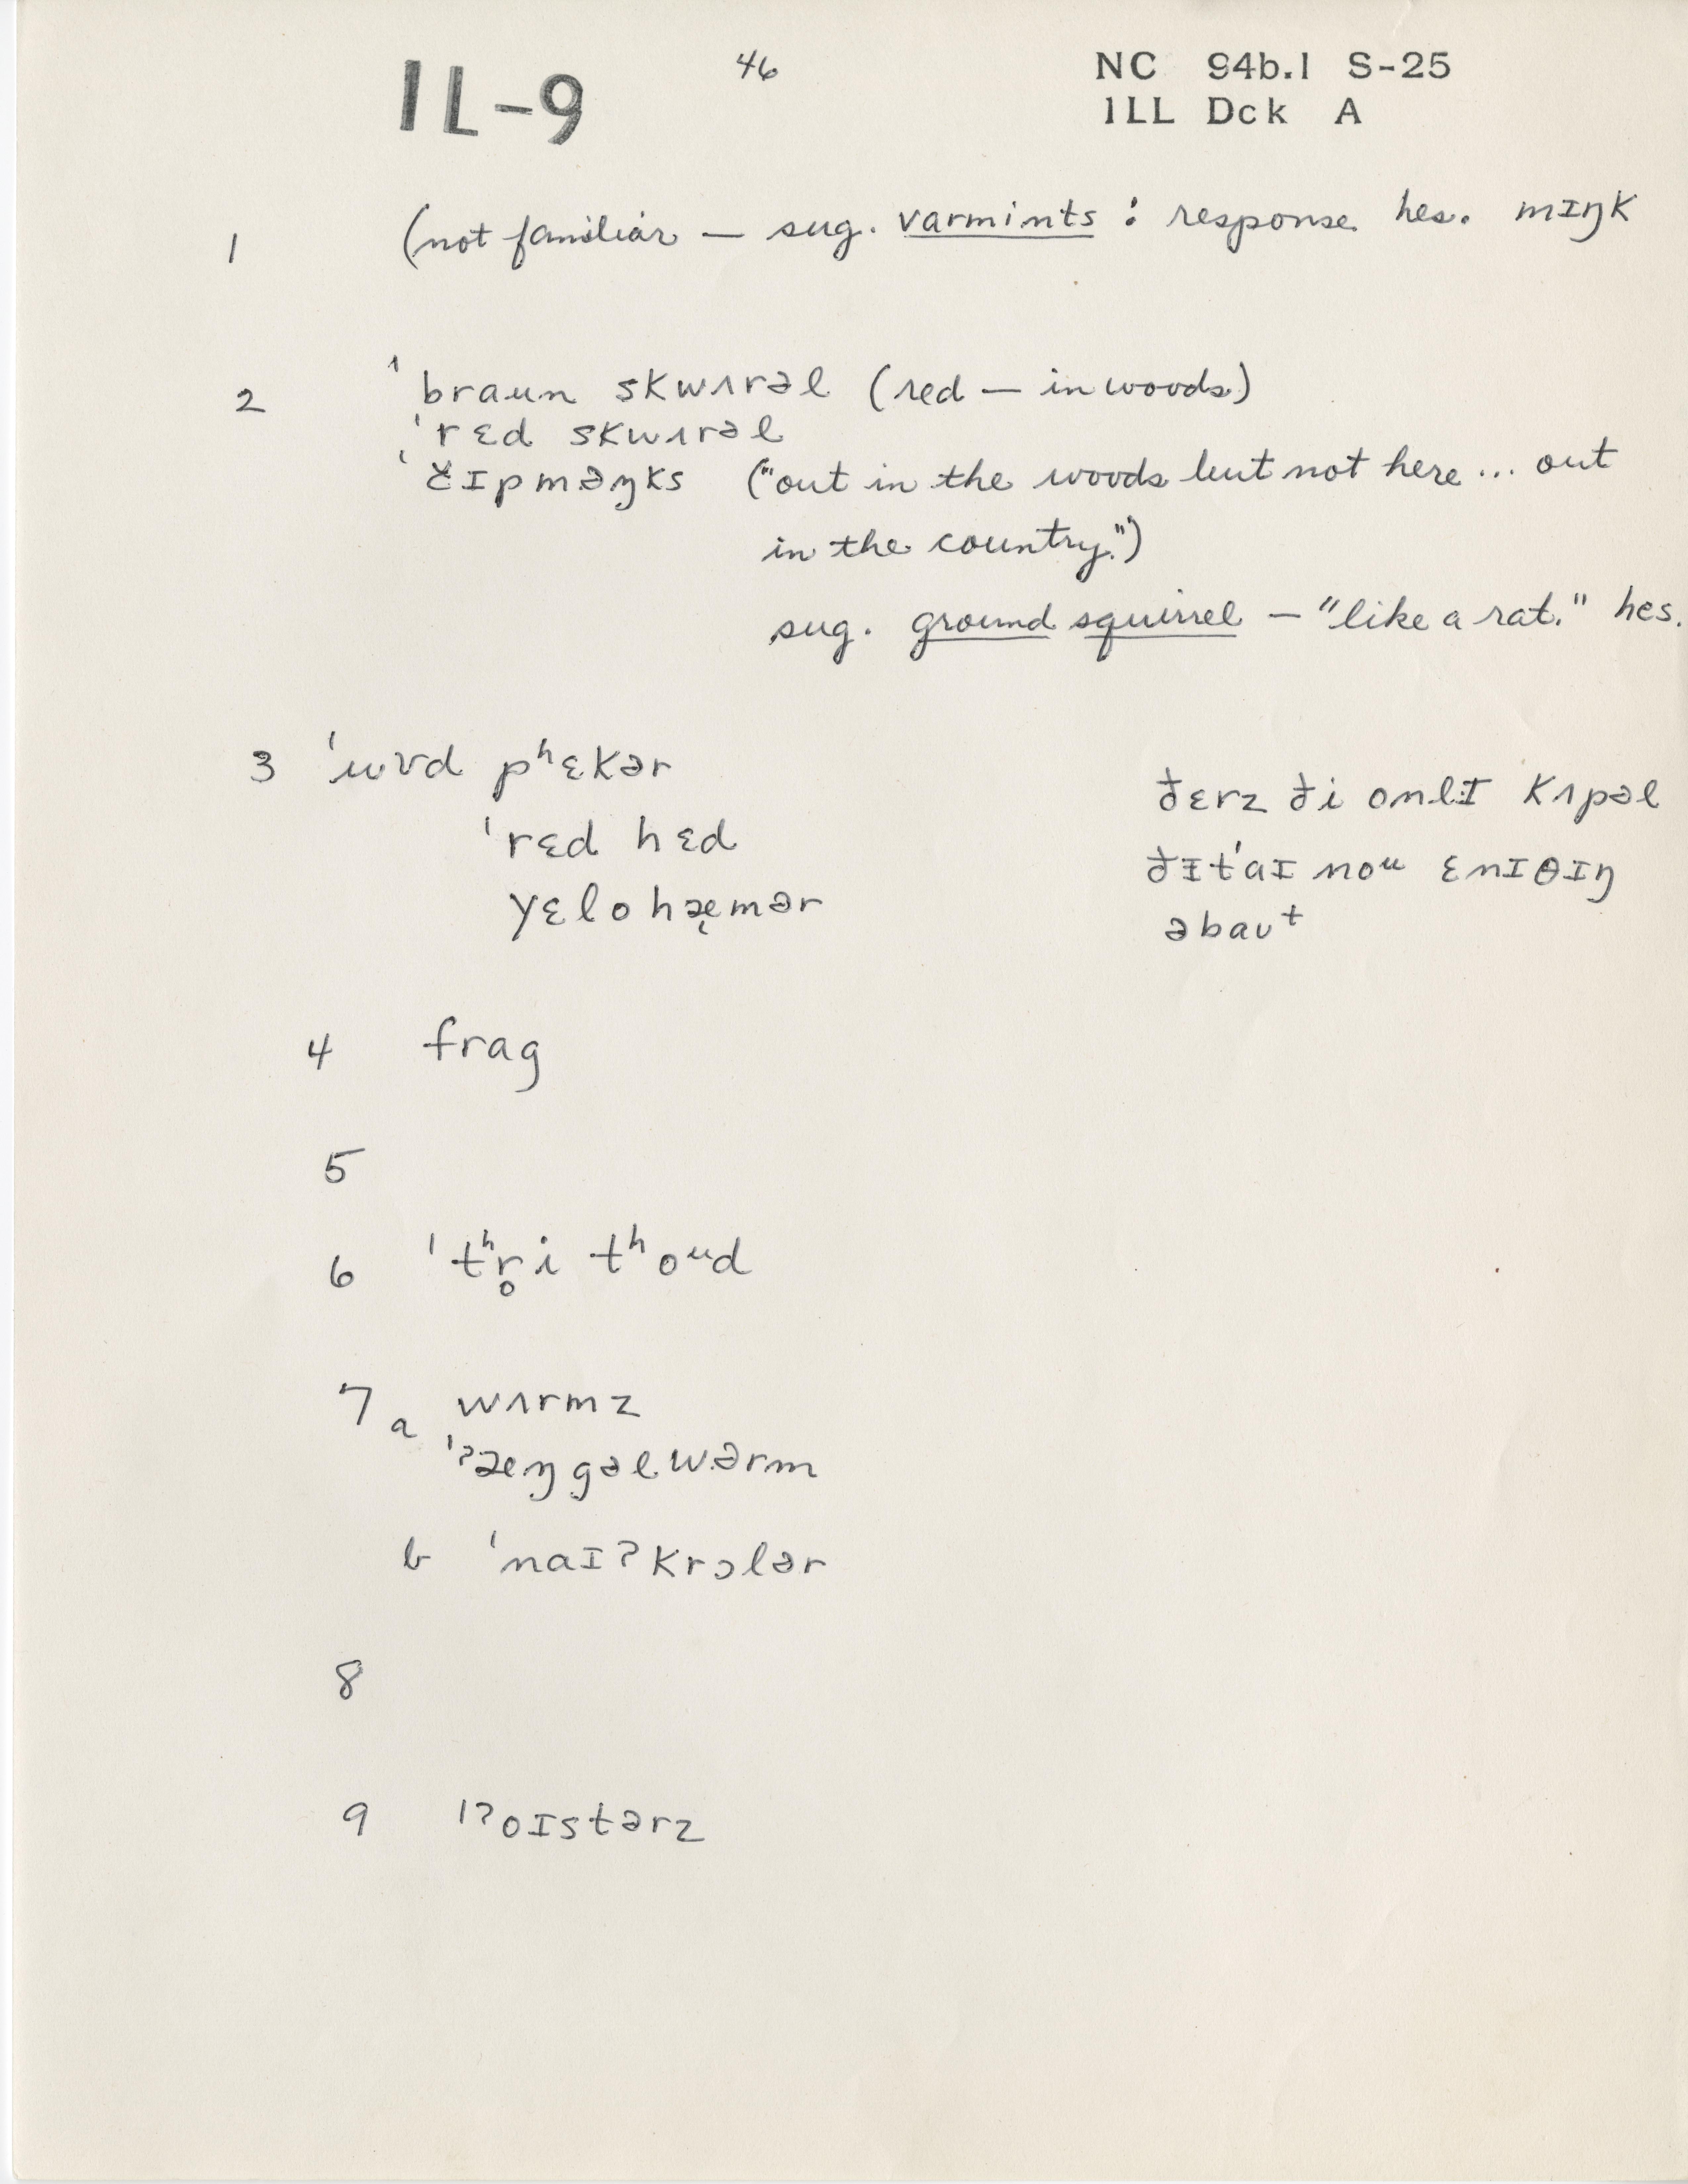 IL-9 46 NC 94b.1 S-25
ILL Dck A
1 (not familiar — sug. varmints : response hes. mɪŋk
2 ˈbraun skwɪrəl (red — in woods)
ˈrɛd skwɪrəl
ˈčɪpməŋks ("out in the woods but not here ... out
in the country.")
sug. ground squirrel — "like a rat." hes.
3 ˈwʊd pʰɛkər ðɛrz ði onlɪ kʌpəl
ˈrɛd hɛd ðɪtˈaɪ noᵘ ɛnɪθɪŋ
yɛlohæmər əbaut
4 frag
5
6 ˈtʰr̥i tʰoᵘd
7 a wʌrmz
ˈʔæŋgəlwərm
b ˈnaɪʔkrɔlər
8
9 ˈʔoɪstərz